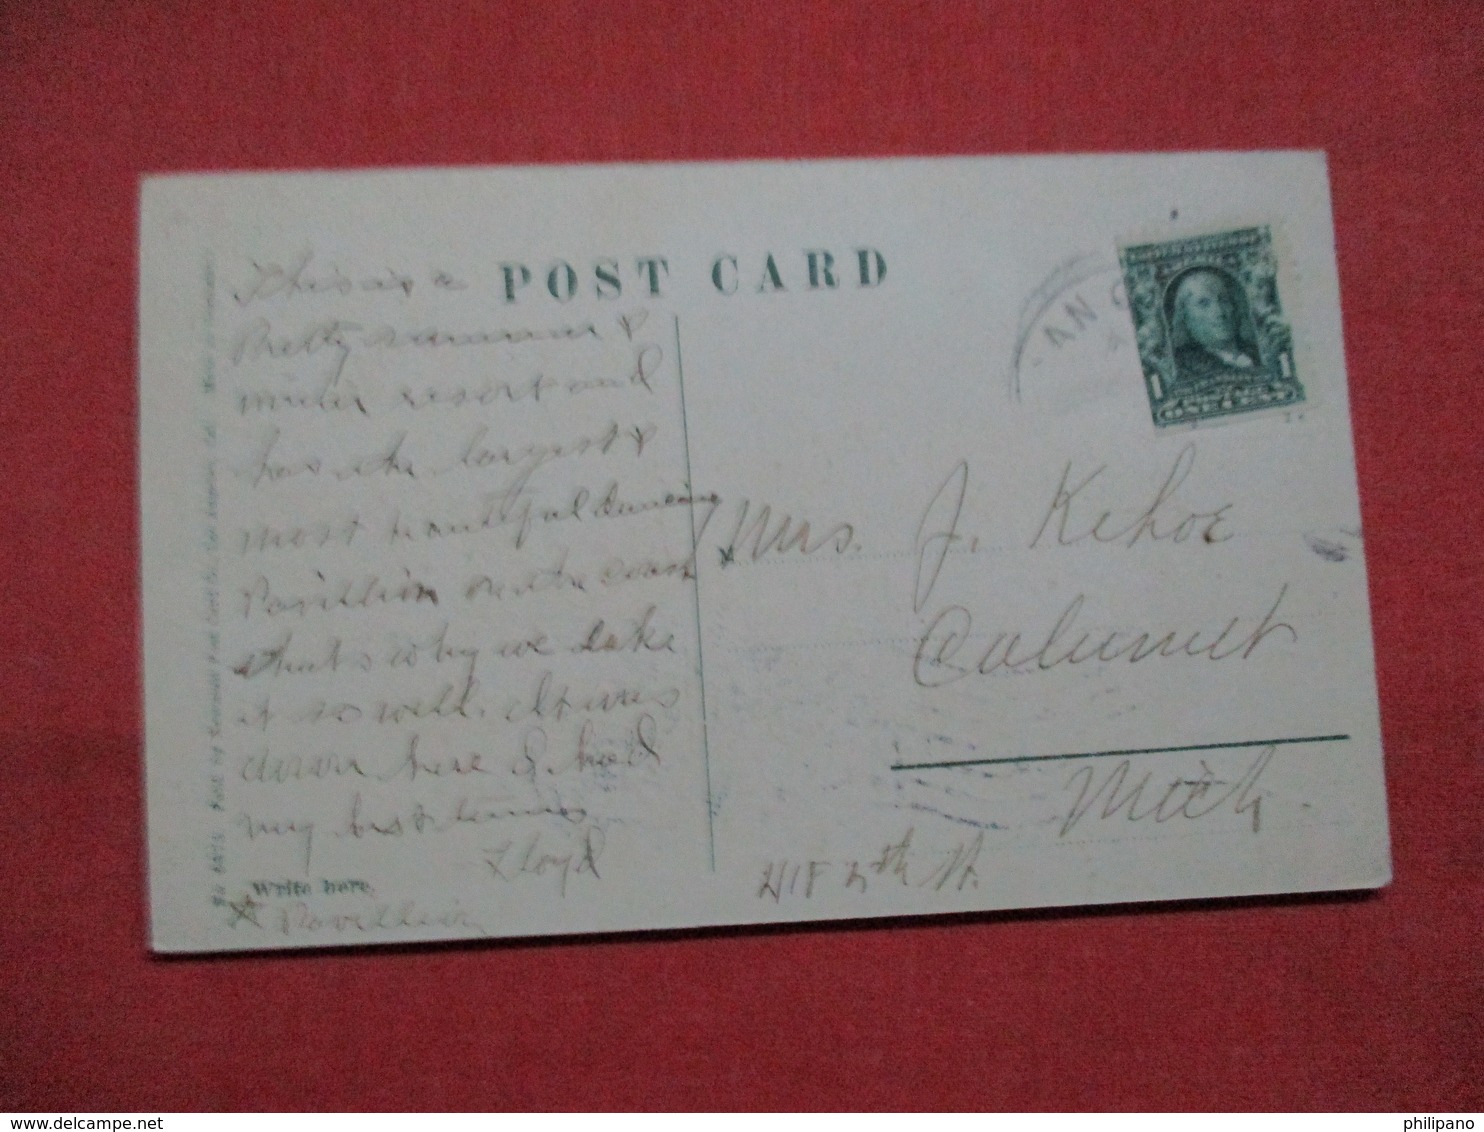 POST CARD
This is a
Pretty summer &
winter resort and
has the largest &
most beautiful dancing
Pavillion on the coast
that's why we like
it so well. It was
down here I had
my best times
Lloyd
Write here.
Pavillion
AN
1 1
ONE CENT
Mrs. J. Kehoe
Calumet
Mich.
th St.
philipano
delcampe.net